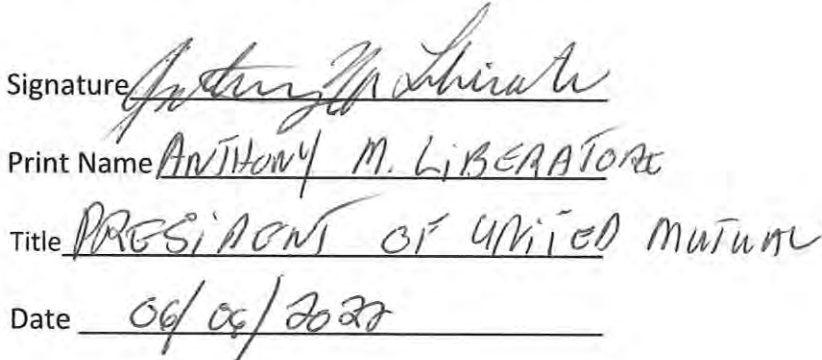 Signature Anthony M Liberatore
Print Name ANTHONY M. LiBERATORE
Title PRESiDENT OF UNiTED MUTUAL
Date 06/06/2022